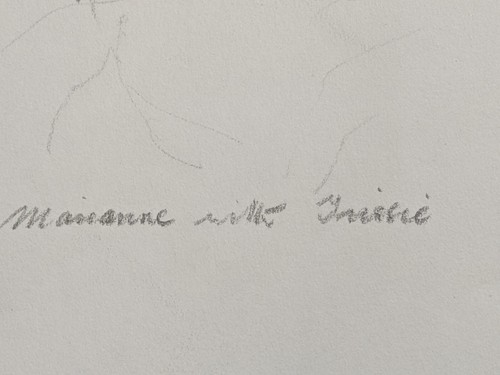 Marianne with Trissie